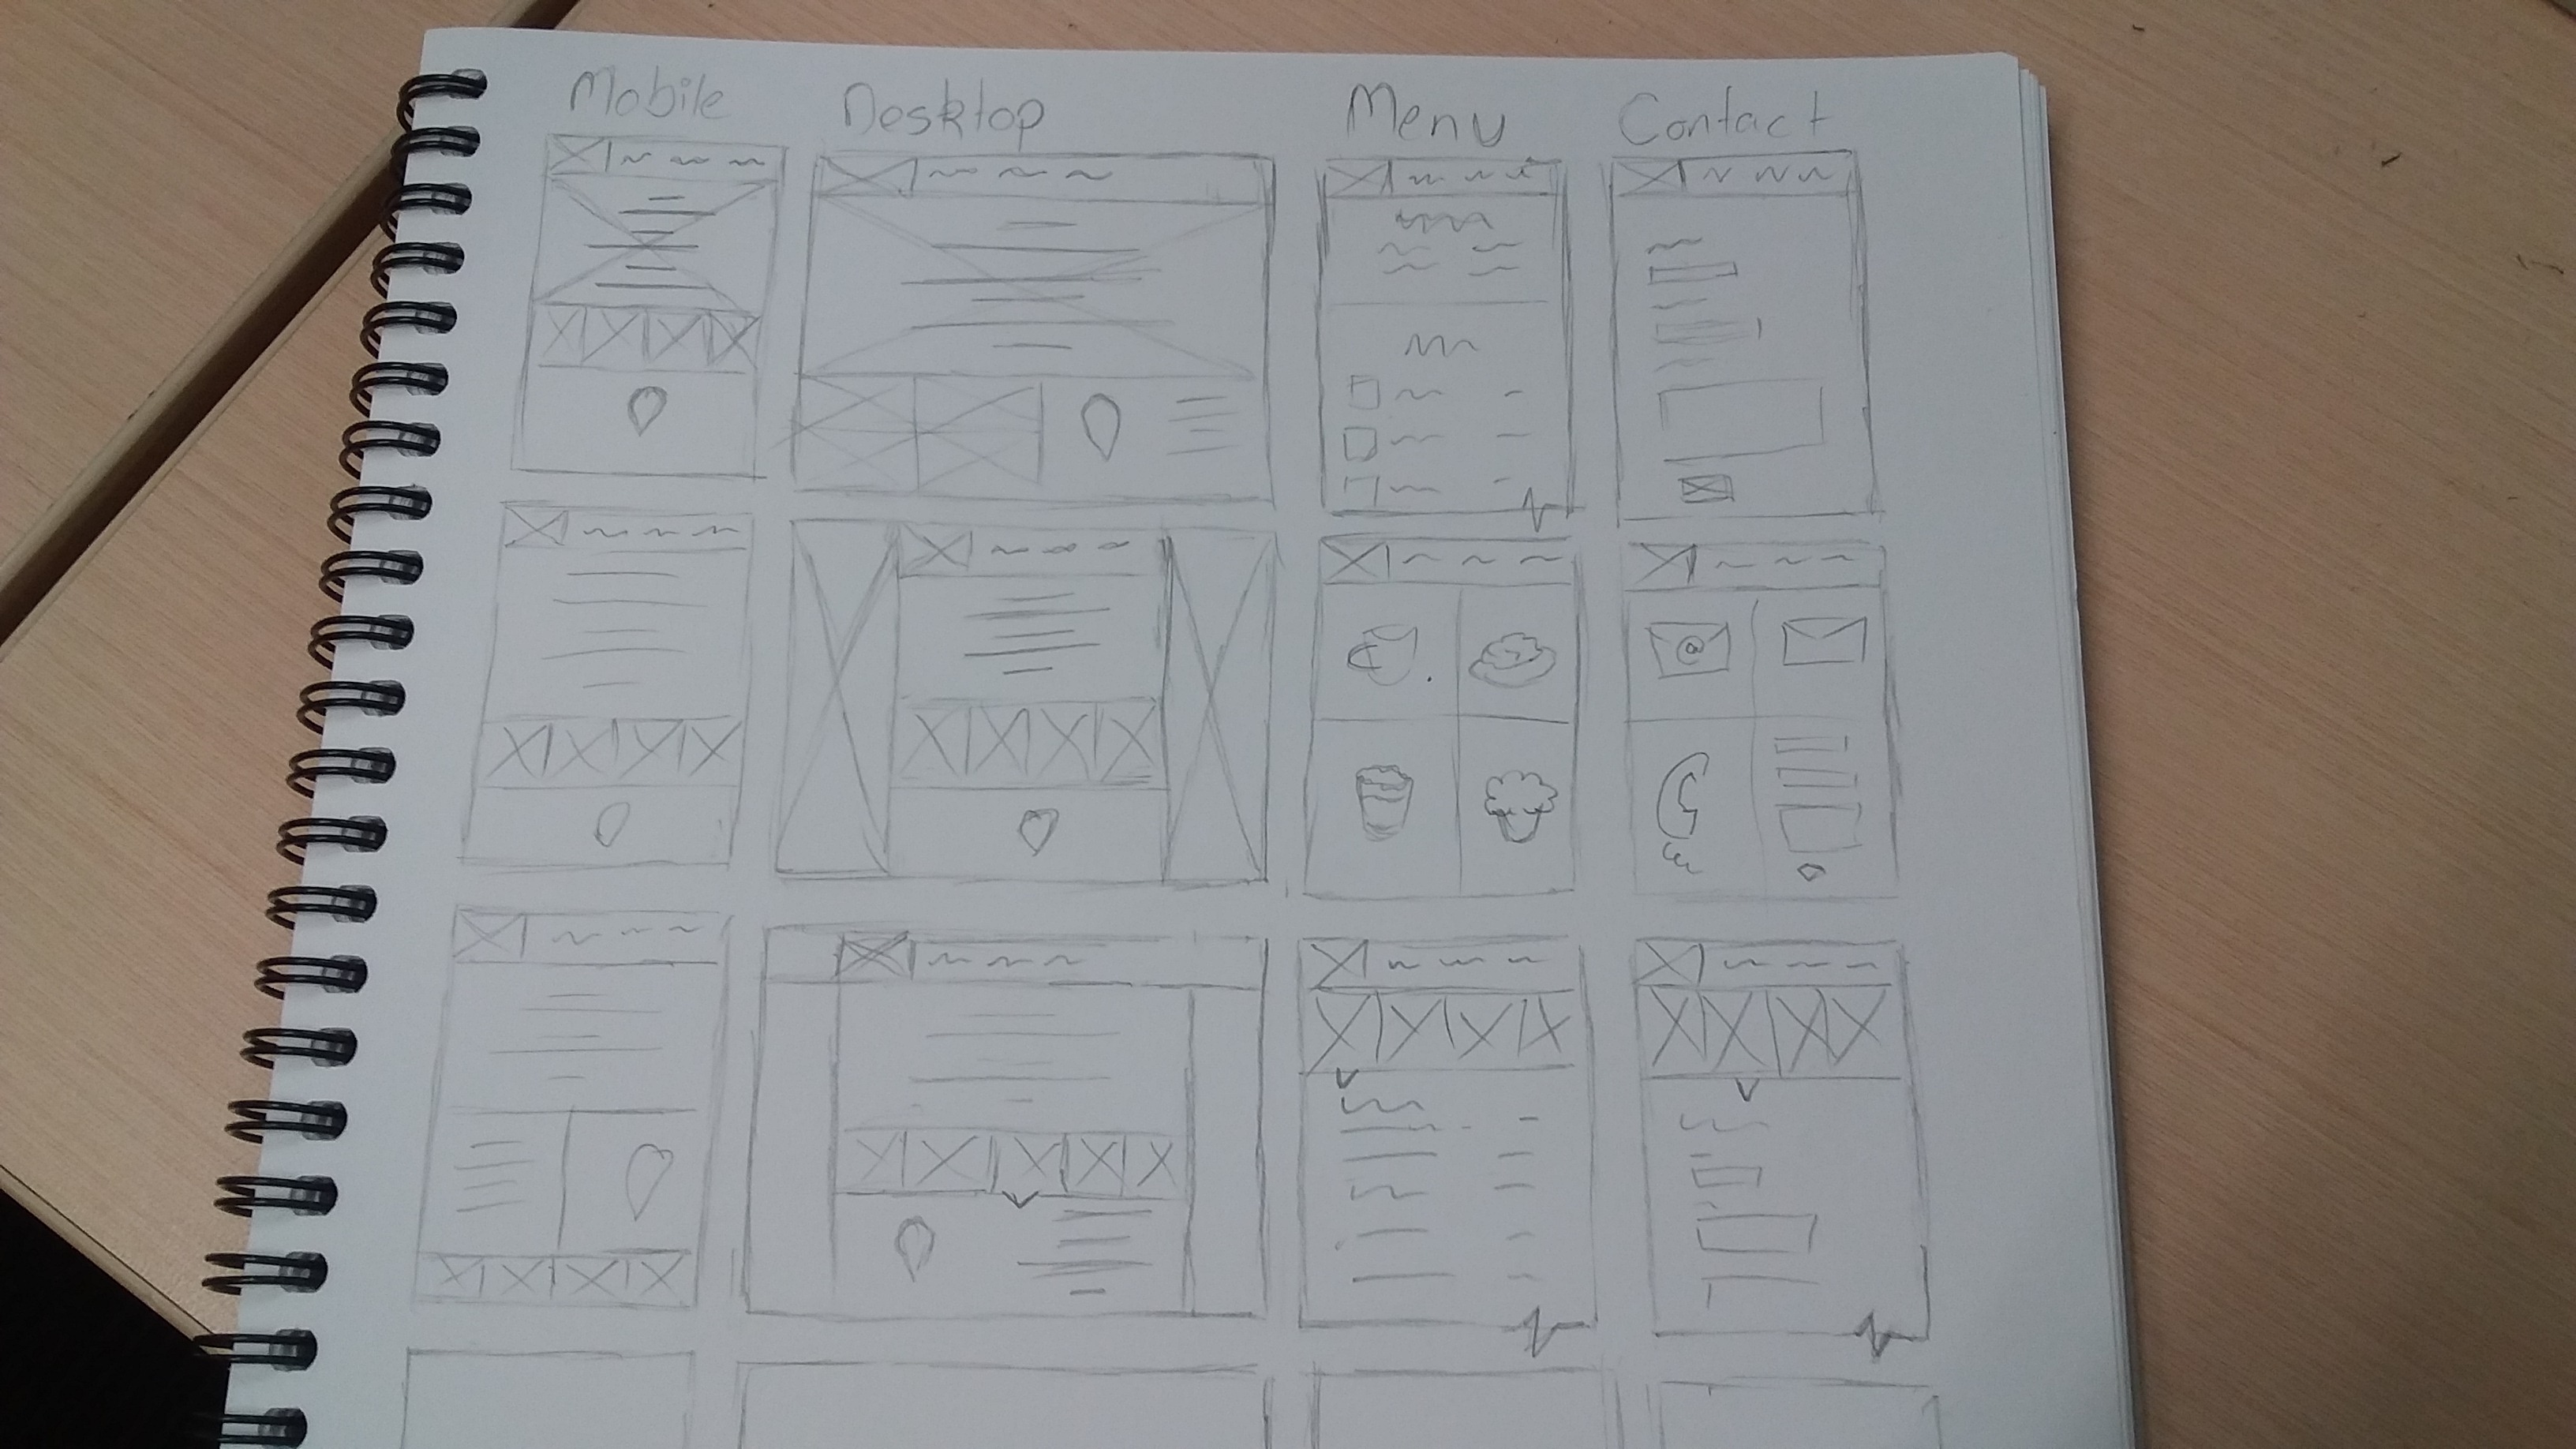 Mobile Desktop Menu Contact
@